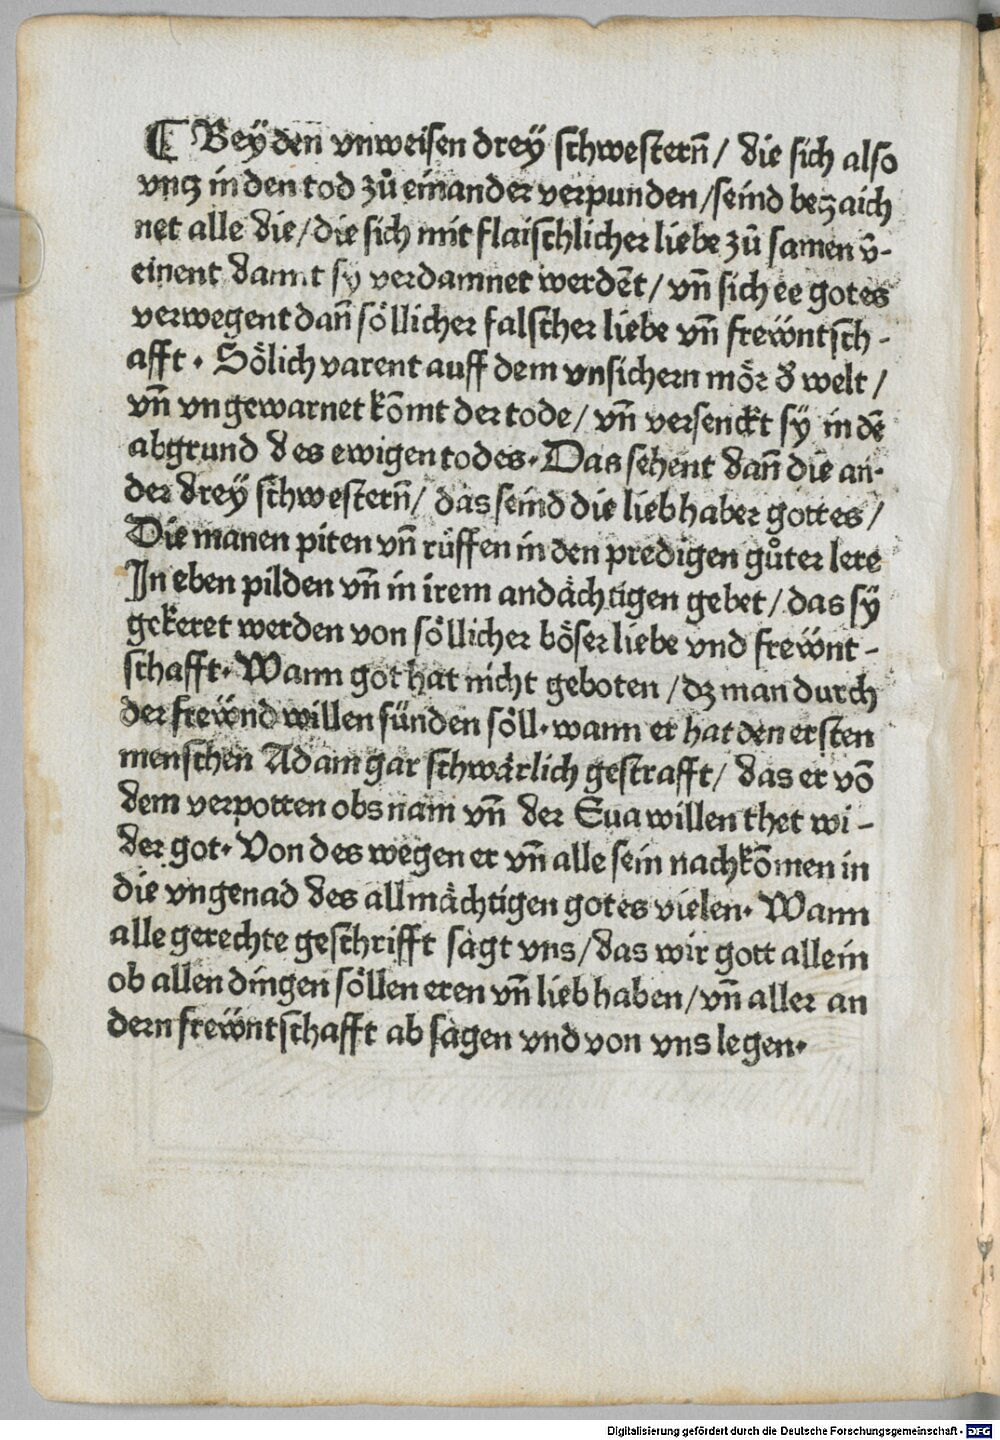 ¶ Beÿ den vnweisen dreÿ schwestern̄/ die sich also
vncz in den tod zů einander verpunden/seind bezaich
net alle die/die sich mit flaischlicher liebe zů samen v̄-
einent damit sy verdamnet werdēt/ vn̄ sich ee gotes
verwegent dan̄ söllicher falscher liebe vn̄ frewntsch-
afft. Sölich varent auff dem vnsichern mör d̕ welt/
vn̄ vngewarnet kōmt der tode/ vn̄ versenckt sÿ in dē
abgrund des ewigen todes. Das sehent dan̄ die an-
der dreÿ schwestern̄/ das seind die liebhaber gottes/
Die manen piten vn̄ rüffen in den predigen gůter lere
In eben pilden vn̄ in irem andächtigen gebet/das sÿ
gekeret werden von söllicher böser liebe vnd frewnt-
schafft. Wann got hat nicht geboten/dz man durch
der frewnd willen sünden söll. wann er hat den ersten
menschen Adam gar schwärlich gestrafft/ das er vō
dem verpotten obs nam vn̄ der Eua willen thet wi-
der got. Von des wegen er vn̄ alle sein nachkōmen in
die vngenad des allmächtigen gotes vielen. Wann
alle gerechte geschrifft sagt vns/das wir gott allein
ob allen dingen söllen eren vn̄ lieb haben/vn̄ aller an
dern frewntschafft ab sagen vnd von vns legen.
Digitalisierung gefördert durch die Deutsche Forschungsgemeinschaft - DFG